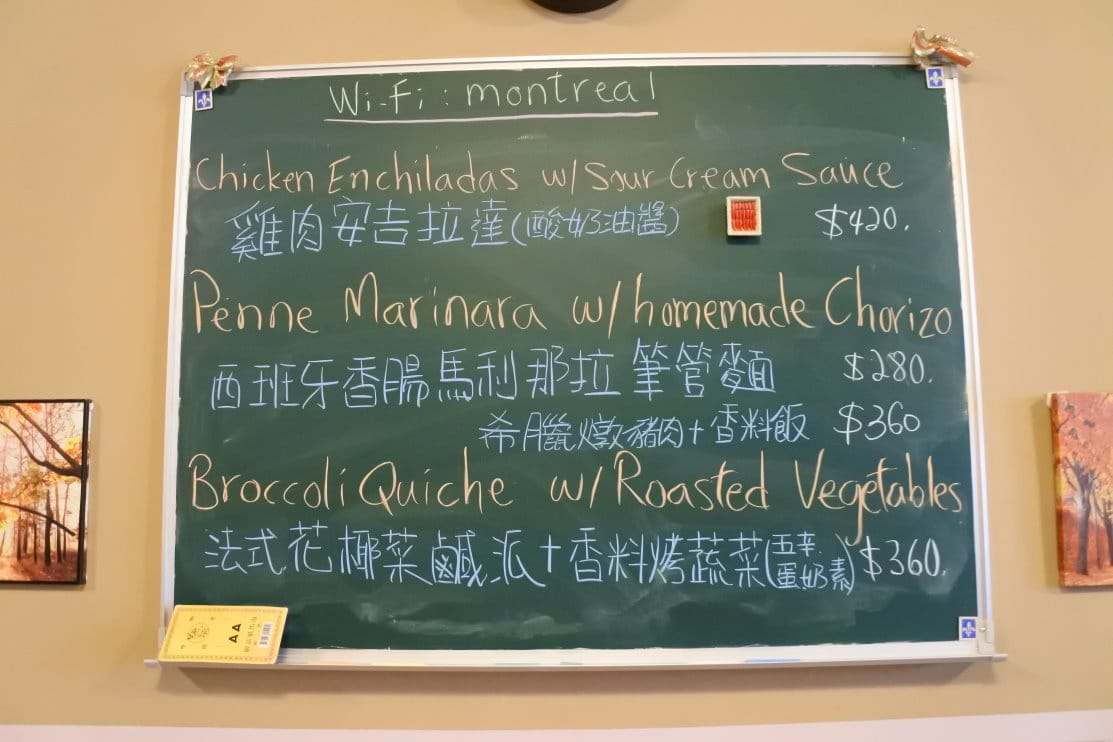 Wi-Fi : montreal
Chicken Enchiladas w/ Sour Cream Sauce
雞肉安吉拉達(酸奶油醬) $420.
Penne Marinara w/ homemade Chorizo
西班牙香腸馬利那拉筆管麵 $280.
希臘燉豬肉+香料飯 $360
Broccoli Quiche w/ Roasted Vegetables
法式花椰菜鹹派+香料烤蔬菜(五辛蛋奶素) $360.
AA